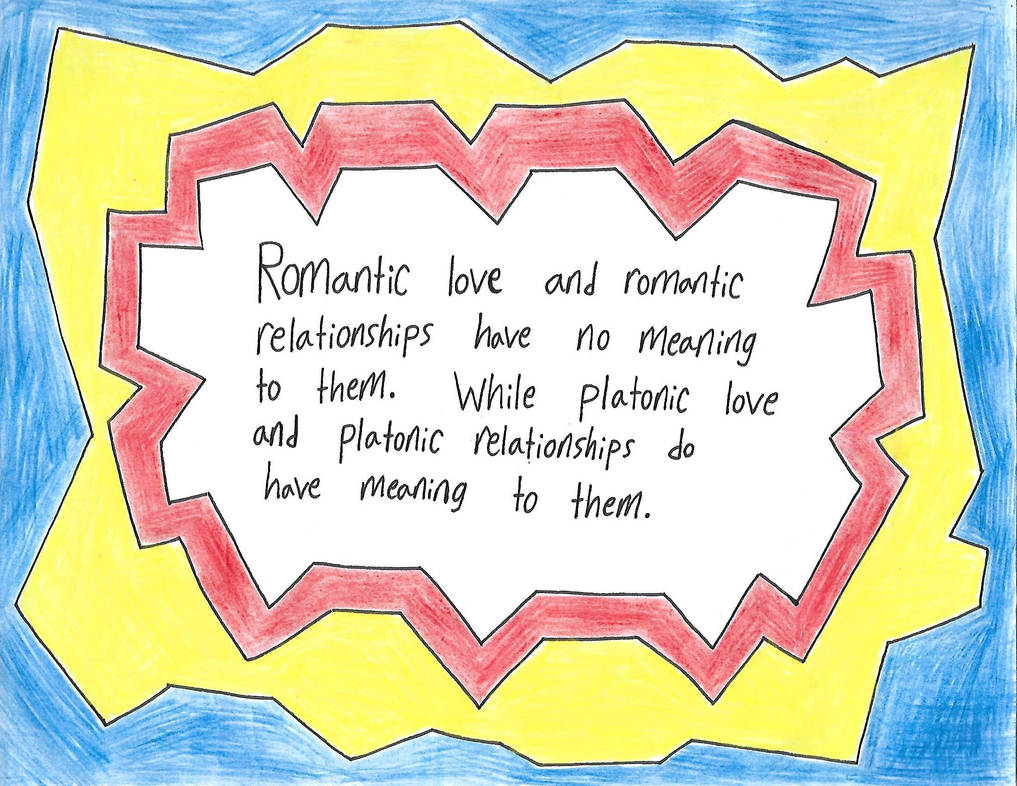 Romantic love and romantic
relationships have no meaning
to them. While platonic love
and platonic relationships do
have meaning to them.